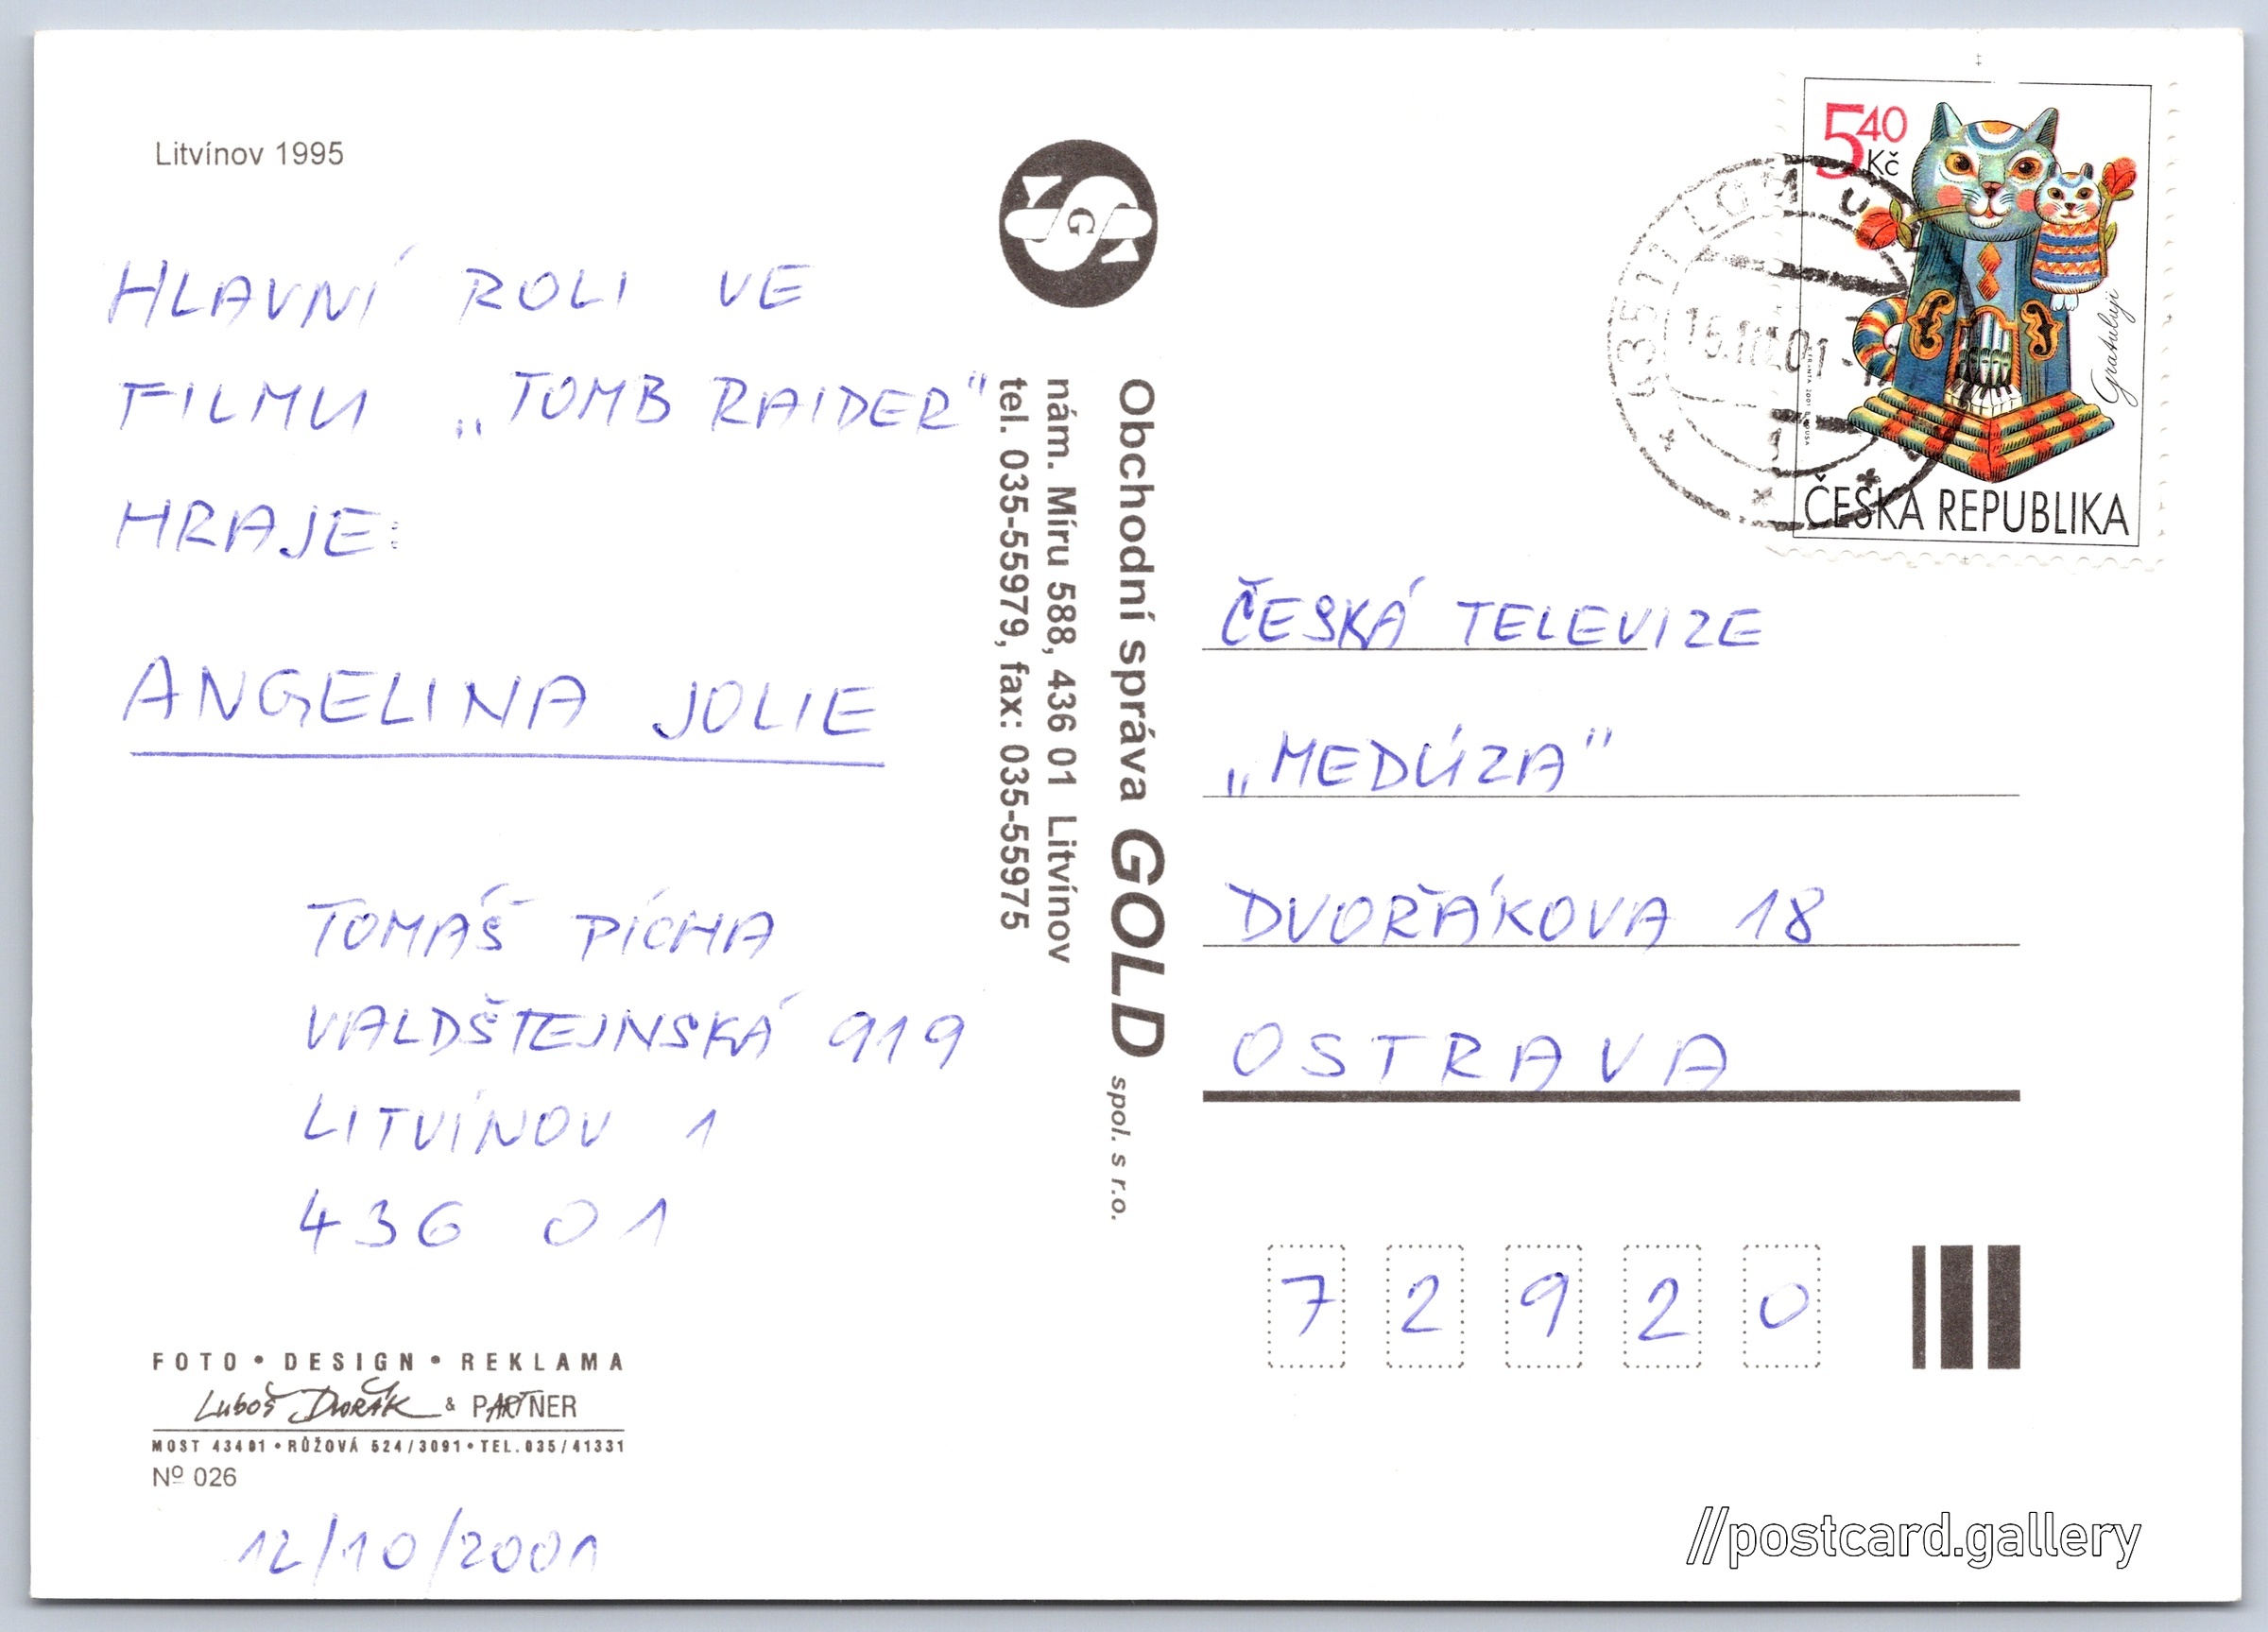 Litvínov 1995
HLAVNÍ ROLI VE
FILMU „TOMB RAIDER"
HRAJE:
ANGELINA JOLIE
TOMÁŠ PÍCHA
VALDŠTEJNSKÁ 919
LITVÍNOV 1
436 01
FOTO • DESIGN • REKLAMA
Luboš Dvořák & PARTNER
MOST 43401 • RŮŽOVÁ 524/3091 • TEL. 035/41331
Nº 026
12/10/2001
G
Obchodní správa GOLD spol. s r.o.
nám. Míru 588, 436 01 Litvínov
tel. 035-55979, fax: 035-55975
540
Kč
Gratuluji
ČESKÁ REPUBLIKA
ČESKÁ TELEVIZE
„MEDÚZA"
DVOŘÁKOVA 18
OSTRAVA
72920
//postcard.gallery